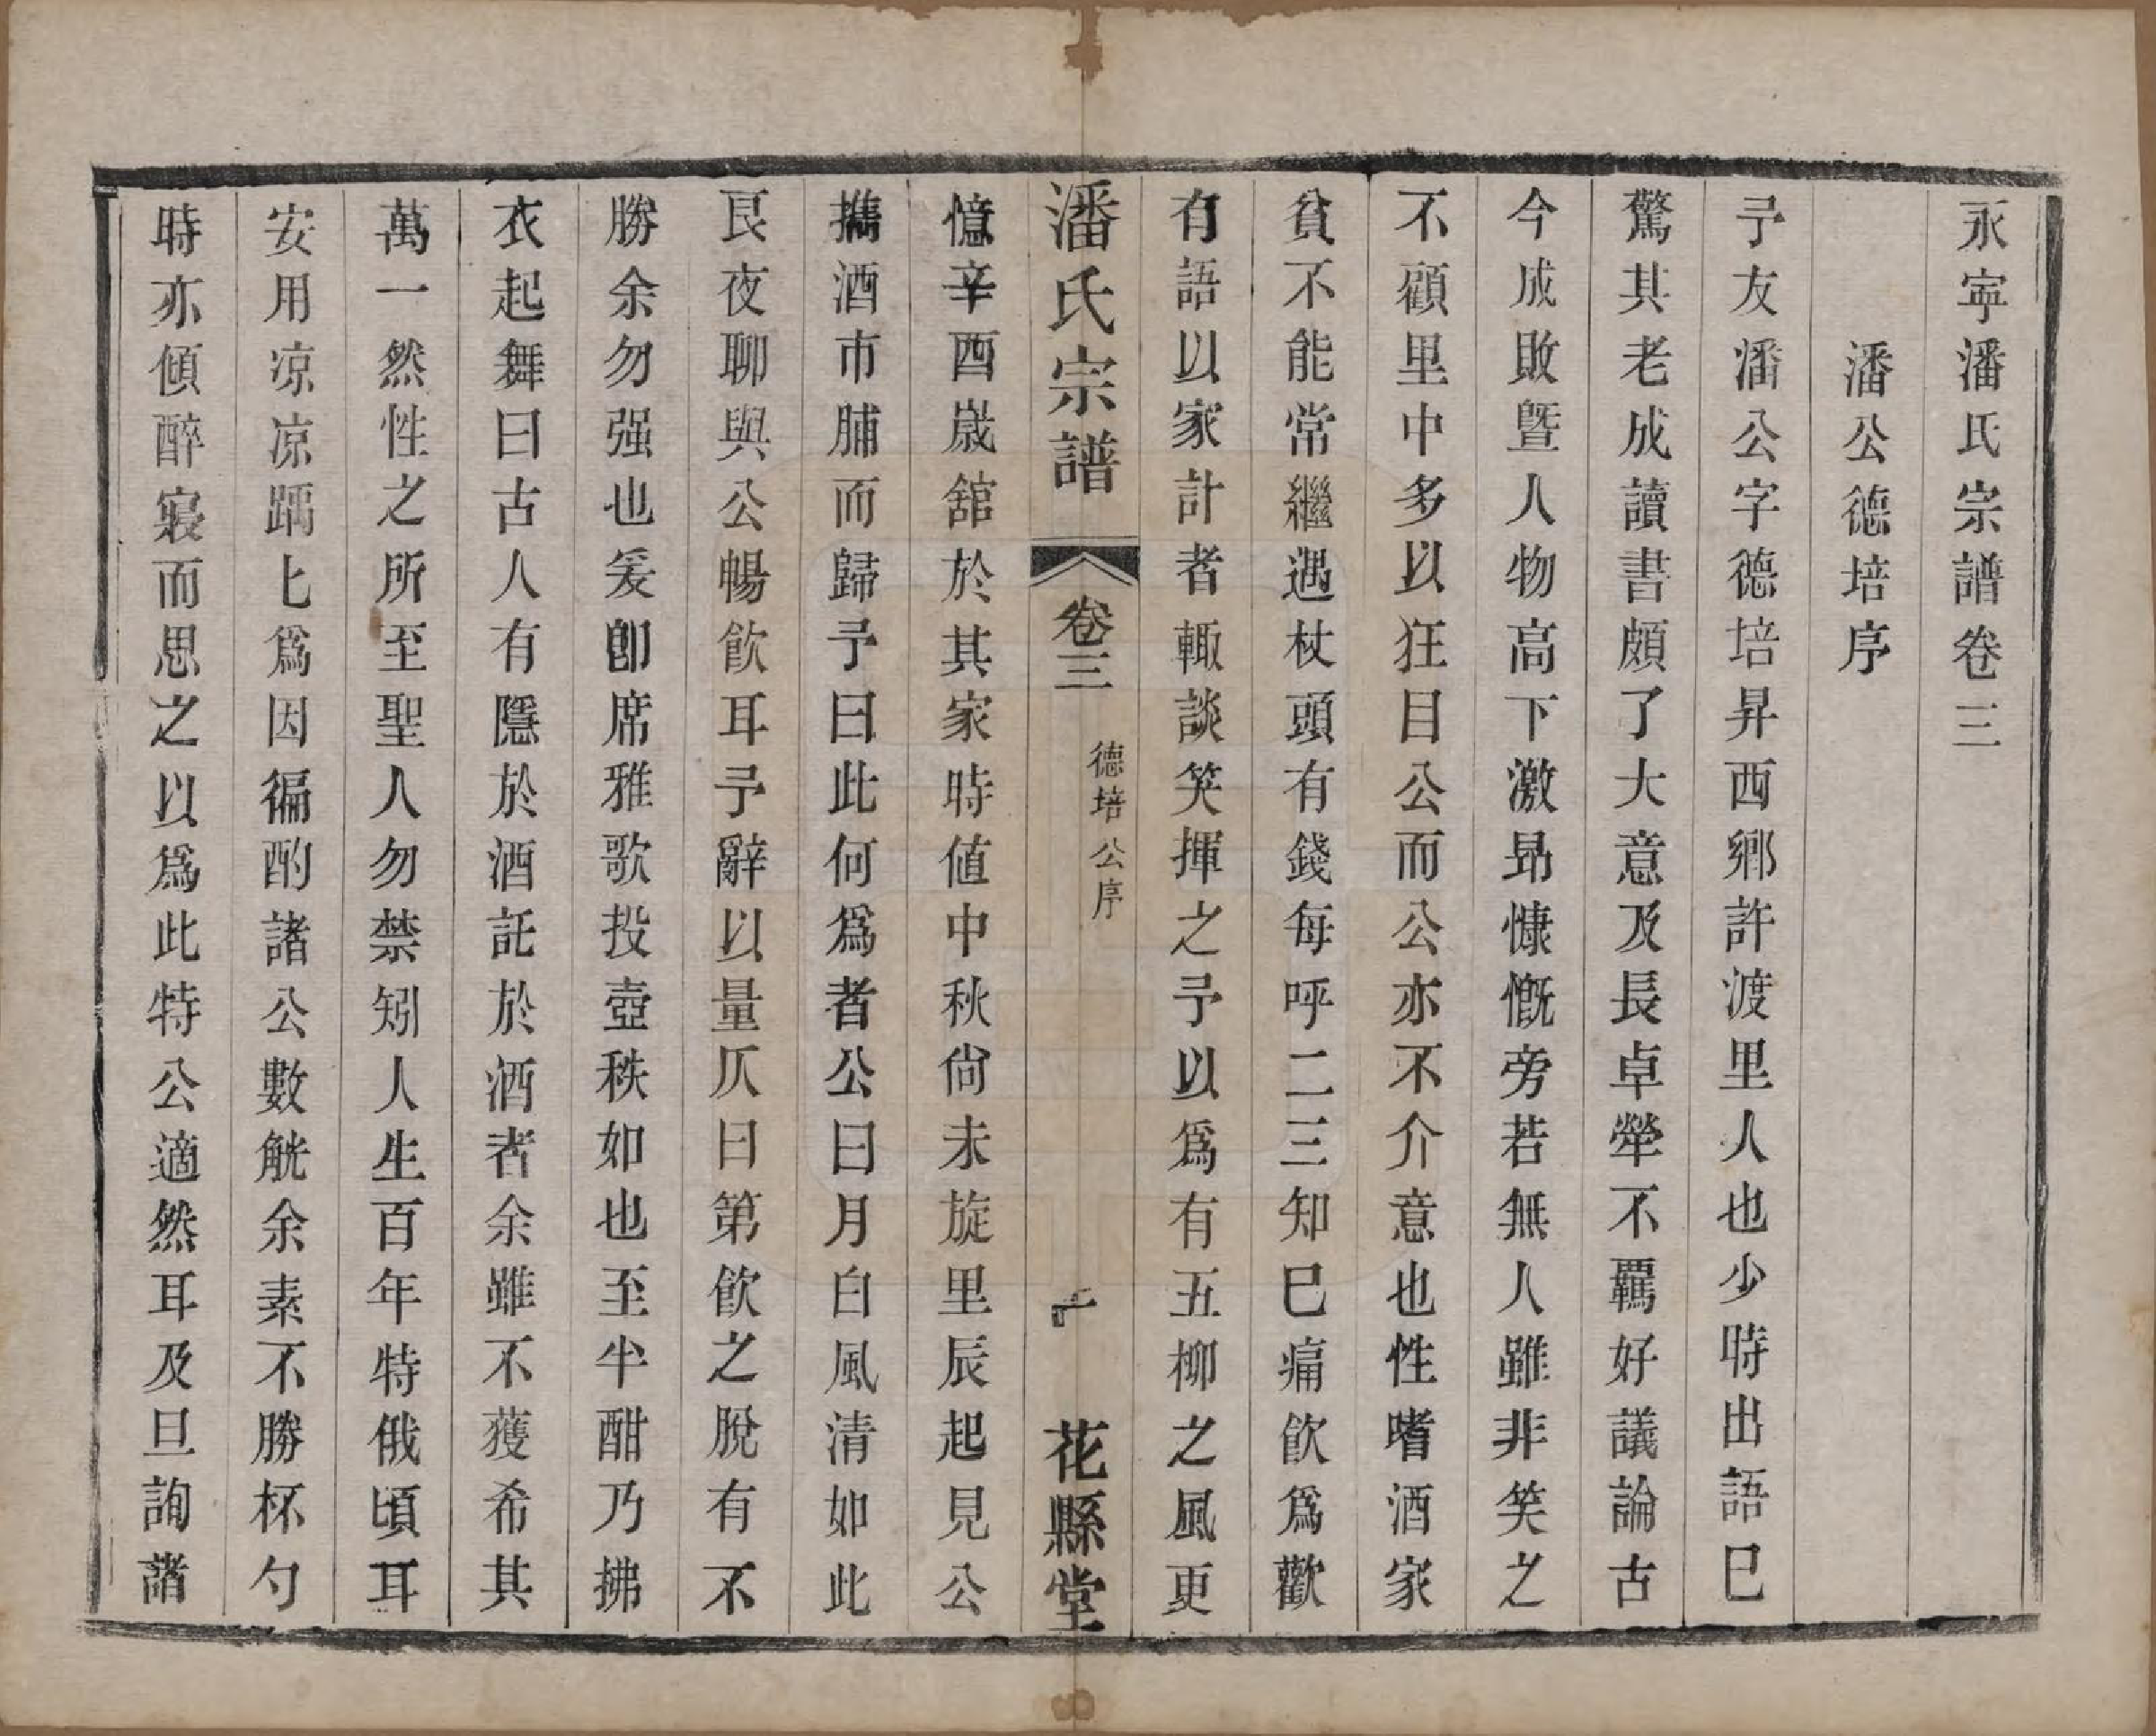 永寧潘氏宗譜卷三
潘公德培序
予友潘公字德培昇西鄉許渡里人也少時出語巳
驚其老成讀書頗了大意及長卓犖不羈好議論古
今成敗暨人物高下激昻慷慨旁若無人雖非笑之
不顧里中多以狂目公而公亦不介意也性嗜酒家
貧不能常繼遇杖頭有錢每呼二三知巳痛飮爲歡
有語以家計者輙談笑揮之予以爲有五柳之風更
潘氏宗譜 卷三 德培公序 一 花縣堂
憶辛酉歲舘於其家時値中秋尙未旋里辰起見公
攜酒市脯而歸予曰此何爲者公曰月白風清如此
艮夜聊與公暢飮耳予辭以量仄曰第飮之脫有不
勝余勿强也爰卽席雅歌投壺秩如也至半酣乃拂
衣起舞曰古人有隱於酒託於酒者余雖不獲希其
萬一然性之所至聖人勿禁矧人生百年特俄頃耳
安用凉凉踽匕爲因徧酌諸公數觥余素不勝杯勺
時亦傾醉寢而思之以爲此特公適然耳及旦詢諸